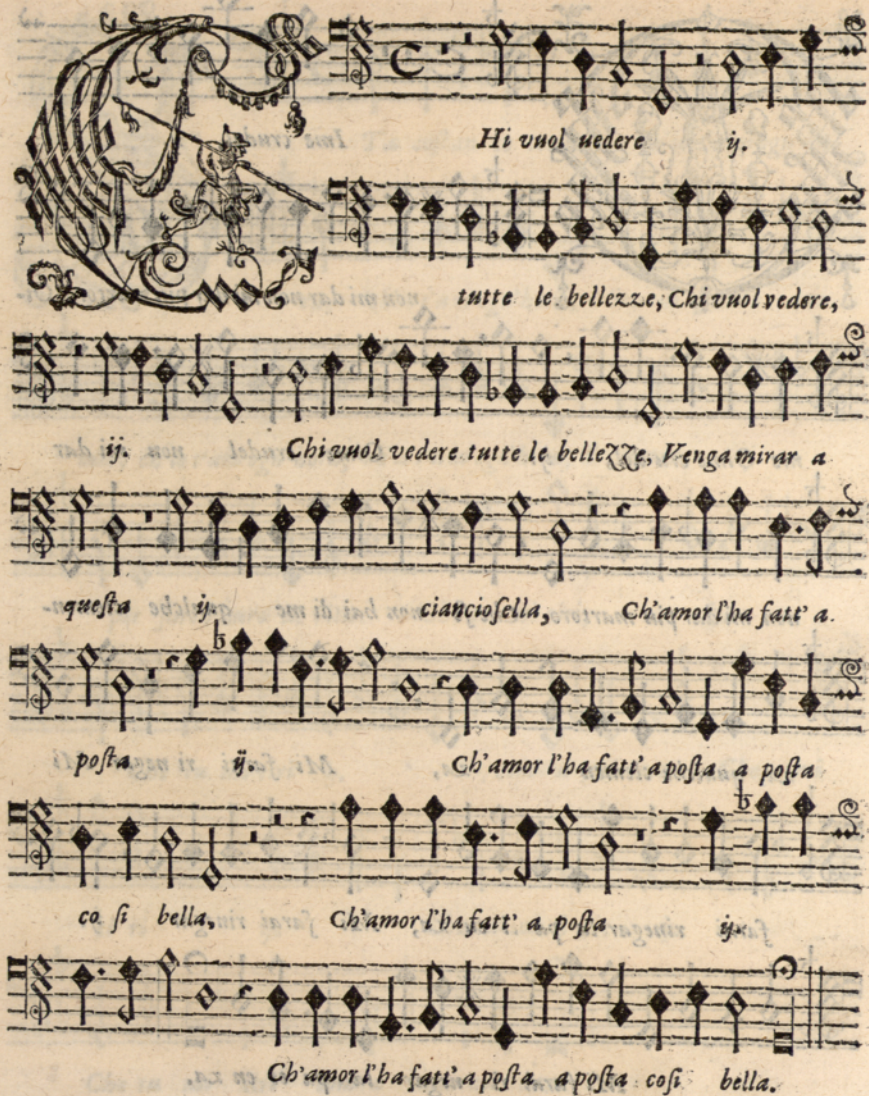 CHi vuol uedere ij.
tutte le bellezze, Chi vuol vedere,
ij. Chi vuol vedere tutte le bellezze, Venga mirar a
questa ij. cianciosella, Ch'amor l'ha fatt' a.
posta ij. Ch'amor l'ha fatt' a posta a posta
co si bella, Ch'amor l'ha fatt' a posta. ij.
Ch'amor l'ha fatt' a posta a posta cosi bella.